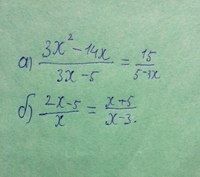 а) (3x² - 14x)/(3x - 5) = 15/(5 - 3x)
б) (2x - 5)/x = (x + 5)/(x - 3).